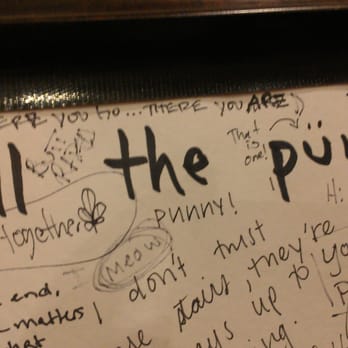 ERE YOU GO... THERE YOU ARE
ll the pü
That
is
one!
together
punny!
Hi:
Meow
I don't trust
stairs, they're
ays up to
end,
matters
hat